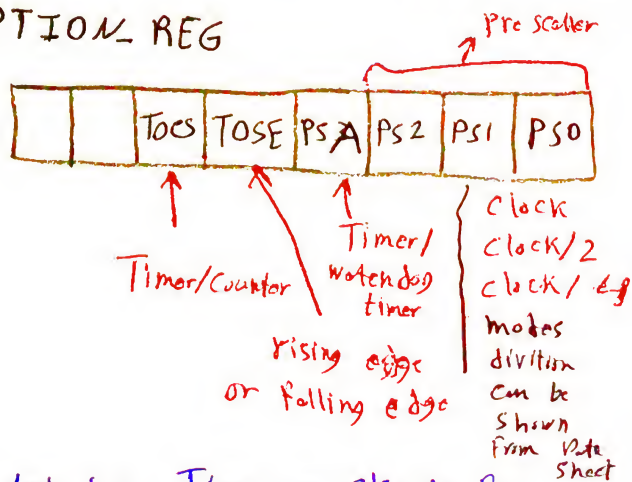 PTION_ REG
Pre scaller
Tocs TOSE PSA PS2 PS1 PS0
Timer/Counter
Timer/
watchdog
timer
rising edge
or falling edge
Clock
Clock/2
Clock/
modes
divition
Can be
Shown
From Data
Sheet